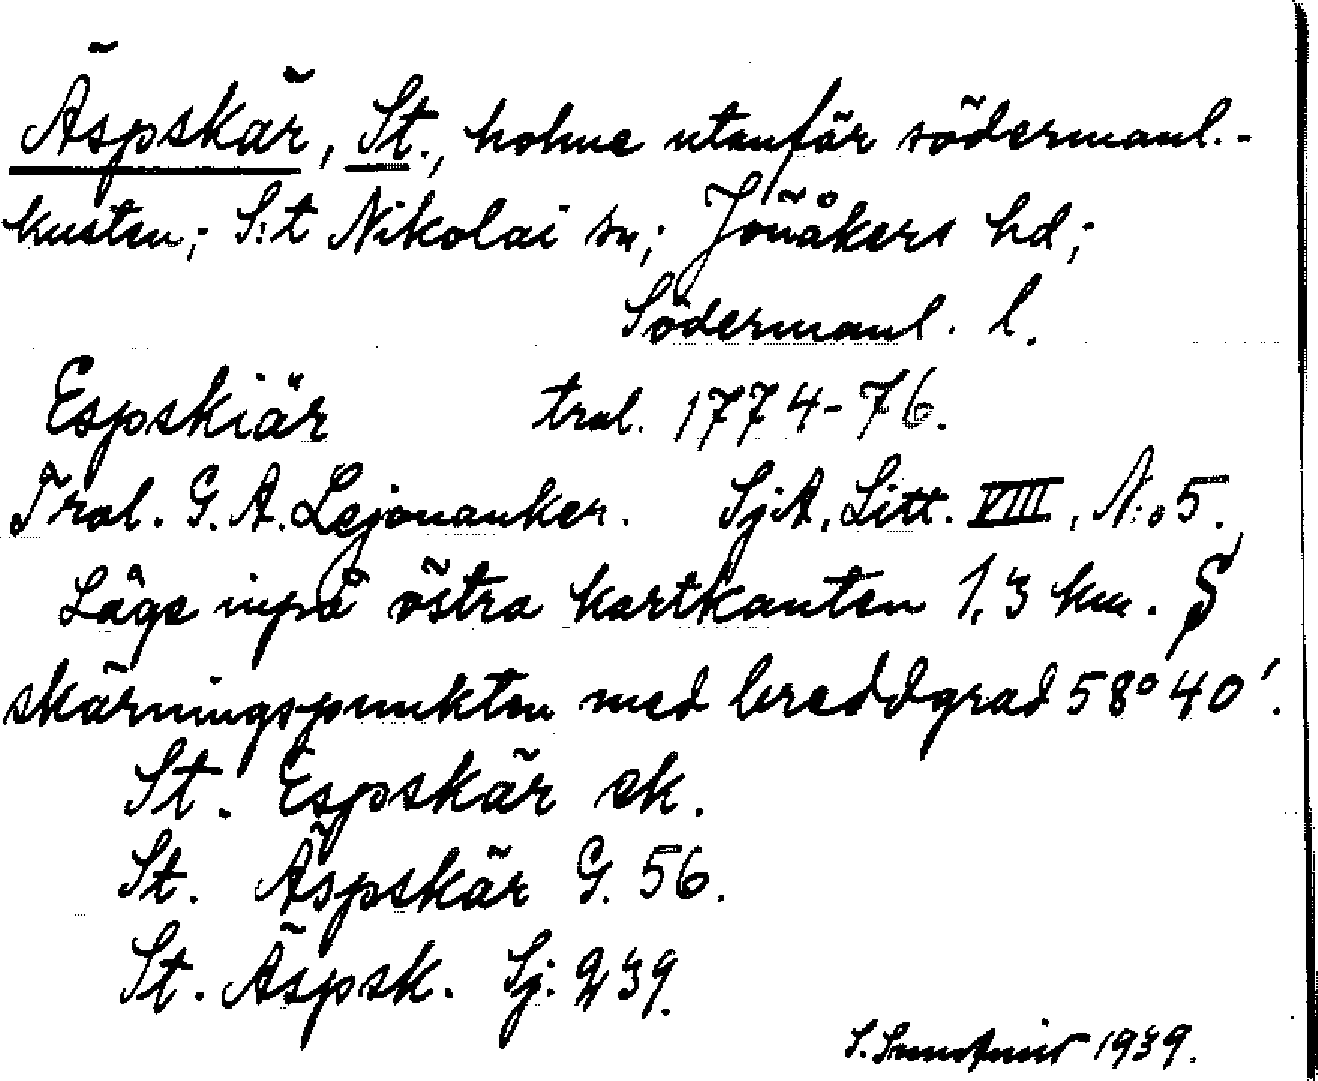 Äspskär, St., holme utanför södermanl.-
kusten; S:t Nikolai sn; Jönåkers hd;
Södermanl. l.
Espskiär tral. 1774-76.
Tral. G. A. Lejonanker. SjA. Litt. VIII, N:o 5.
Läge inpå östra kartkanten 1,3 km. S
skärningspunkten med breddgrad 58° 40'.
St. Espskär ek.
St. Äspskär G. 56.
St. Äspsk. Sj. 239.
S. 1939.